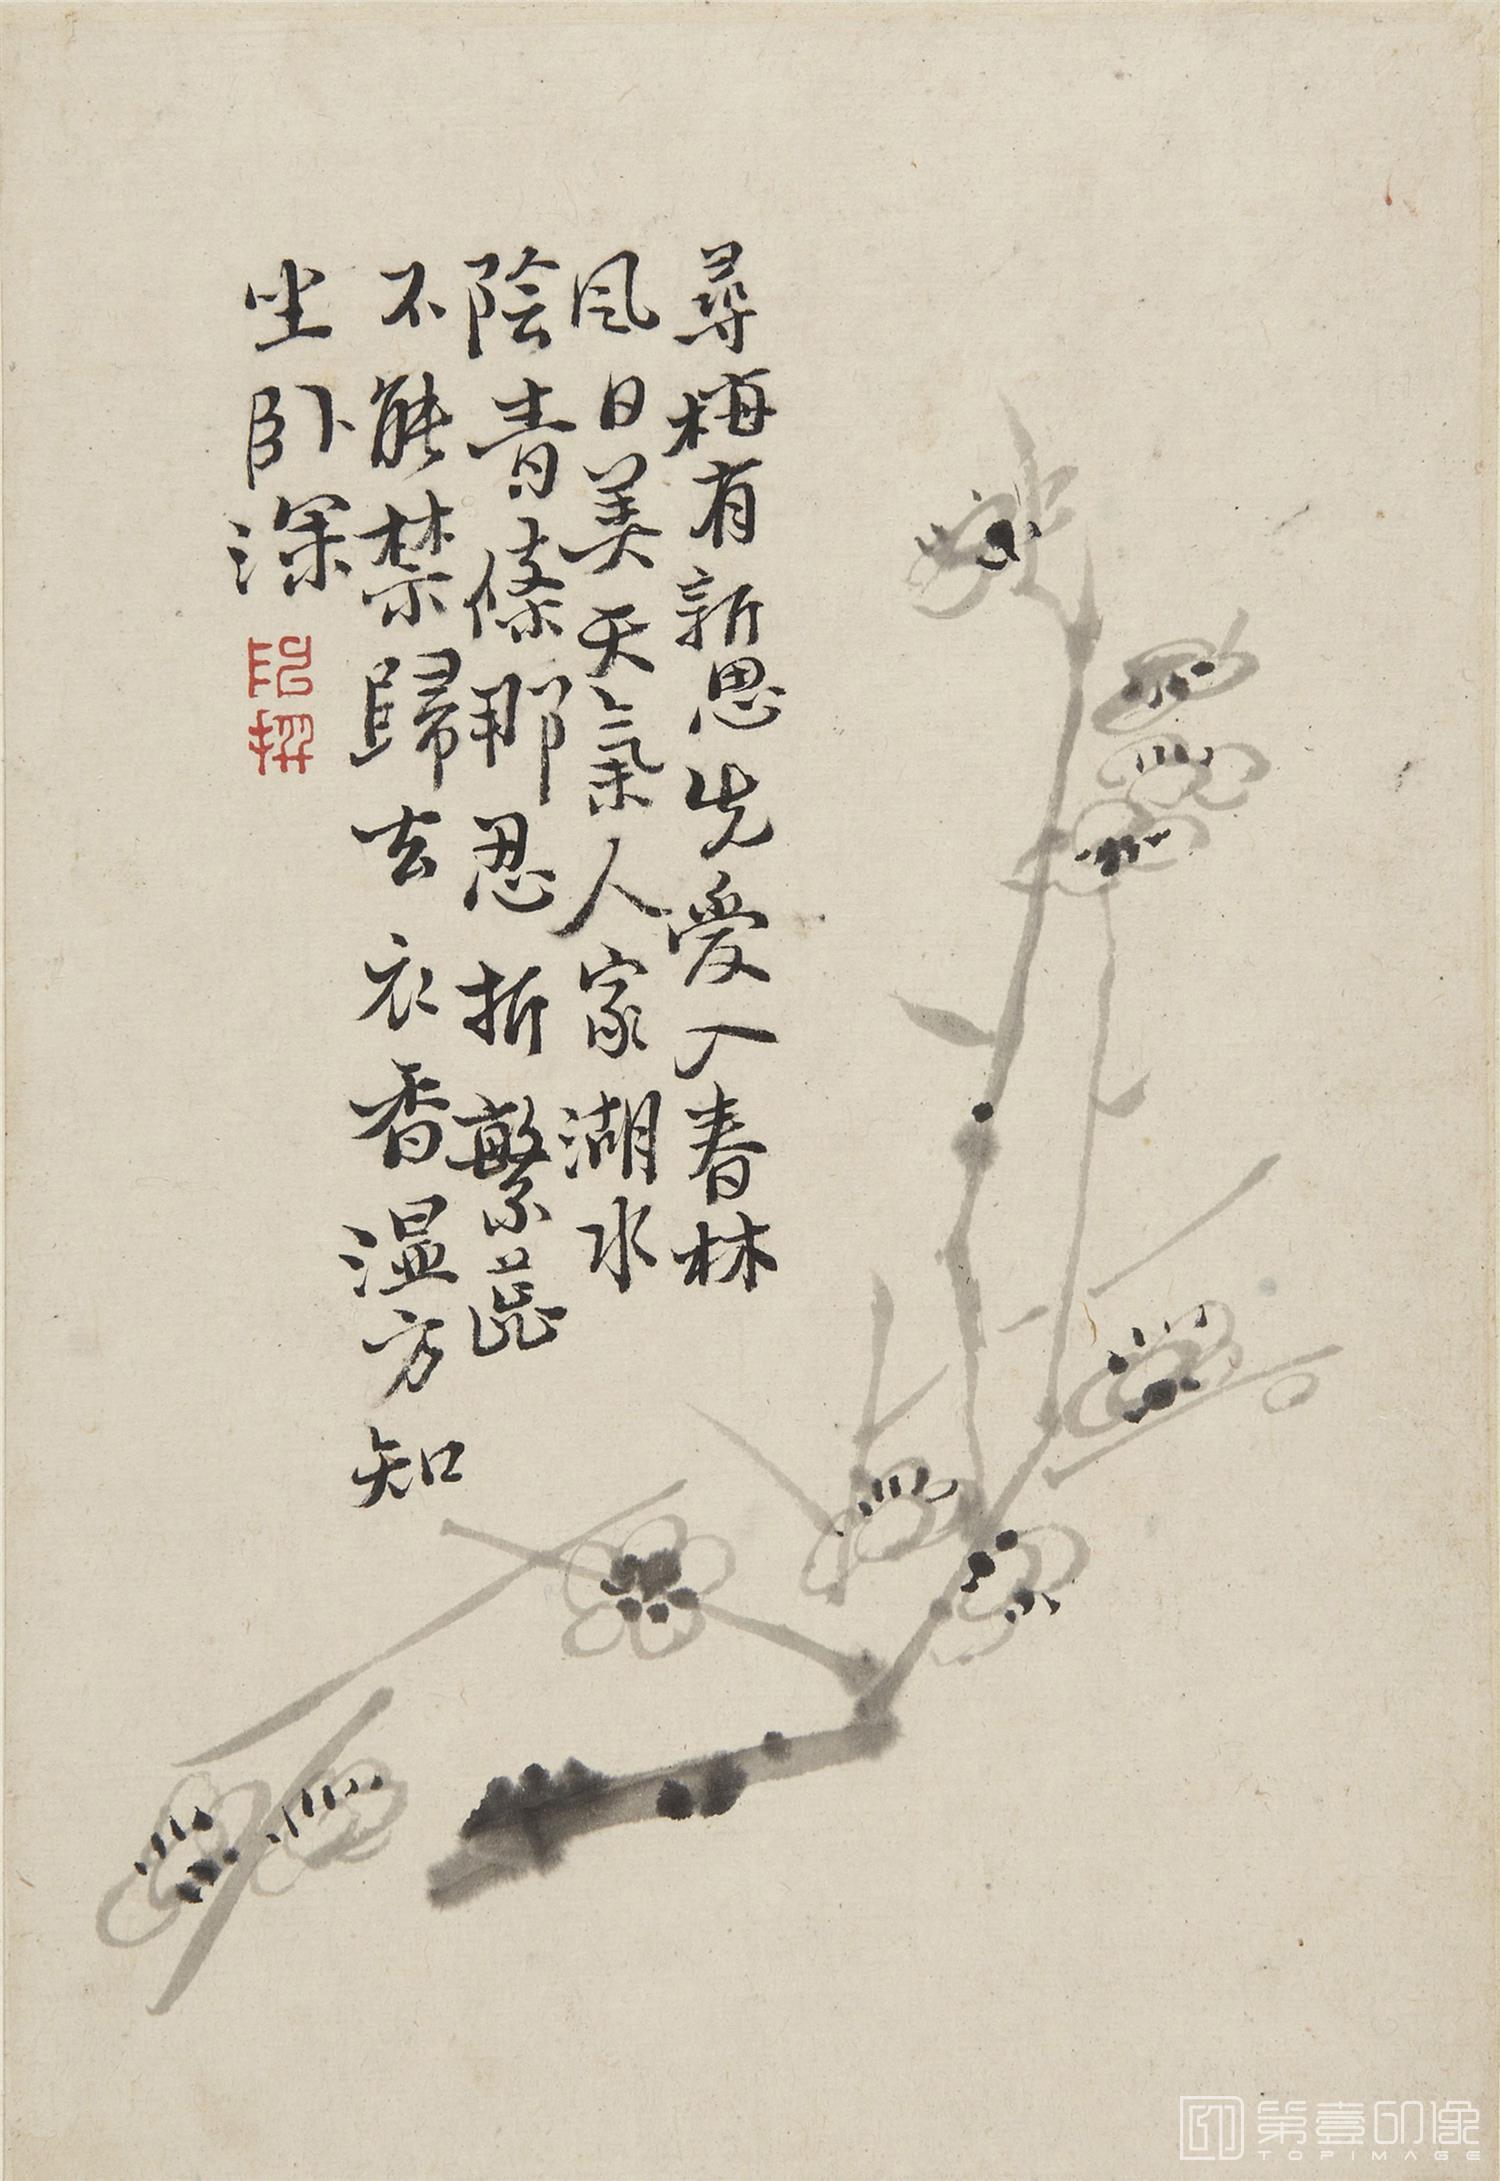 尋梅有新思先愛入春林
風日美天氣人家湖水
陰青條那忍折繁蕊
不能禁歸去衣香溫方知
坐卧深
第壹印像
TOPIMAGE